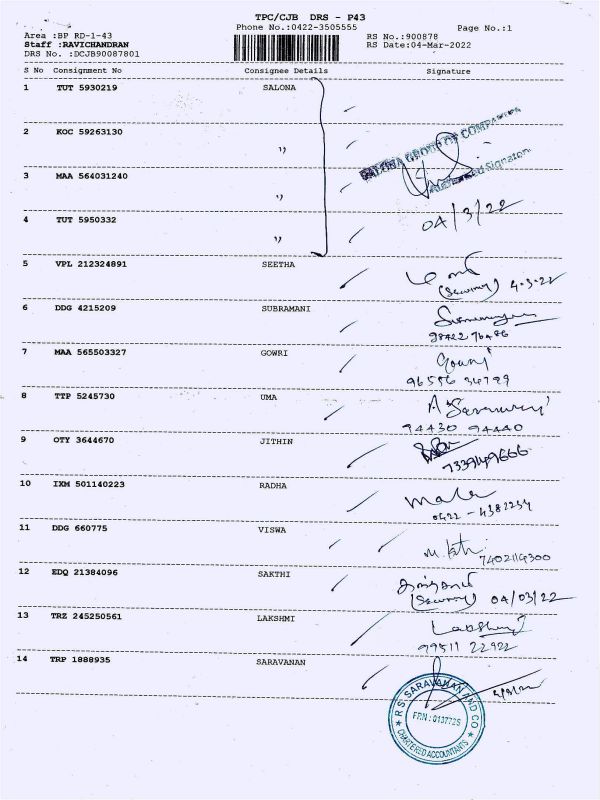 TPC/CJB DRS - P43
Phone No.:0422-3505555
Page No.:1
Area :BP RD-1-43
Staff :RAVICHANDRAN
DRS No. :DCJB90087801
RS No.:900878
RS Date:04-Mar-2022
S No Consignment No Consignee Details Signature
1 TUT 5930219 SALONA
2 KOC 59263130 "
SALONA GROUP OF COMPANIES
Authorised Signatory
3 MAA 564031240 "
4 TUT 5950332 "
04/3/22
5 VPL 212324891 SEETHA
(Security) 4-3-22
6 DDG 4215209 SUBRAMANI
98422 76486
7 MAA 565503327 GOWRI Gowri
96556 34799
8 TTP 5245730 UMA
94430 94440
9 OTY 3644670 JITHIN
7339149666
10 IXM 501140223 RADHA Mala
0422 - 4382234
11 DDG 660775 VISWA
7402114300
12 EDQ 21384096 SAKTHI
(Security) 04/03/22
13 TRZ 245250561 LAKSHMI Lakshmi
99511 22922
14 TRP 1888935 SARAVANAN
R S SARAVANAN AND CO
FRN: 013772S
CHARTERED ACCOUNTANTS